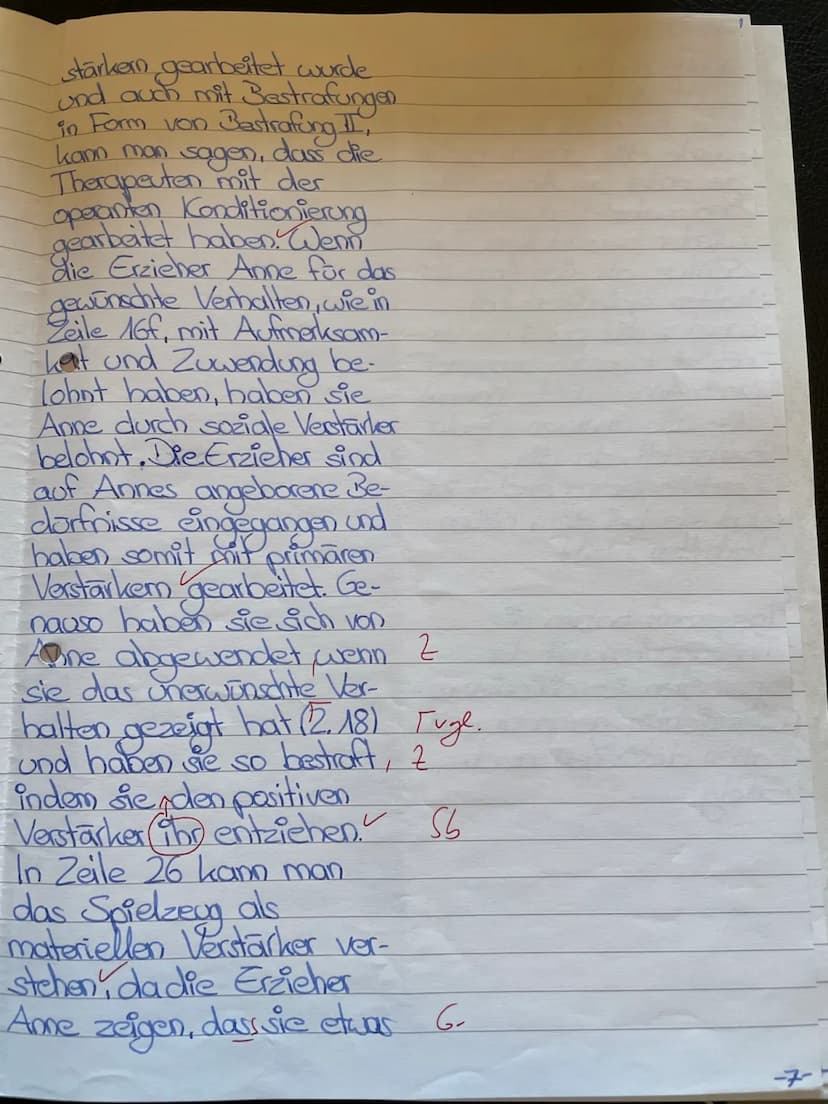 stärkern gearbeitet wurde
und auch mit Bestrafungen
in Form von Bestrafung II,
kann man sagen, dass die
Therapeuten mit der
operanten Konditionierung
gearbeitet haben. Wenn
die Erzieher Anne für das
gewünschte Verhalten, wie in
Zeile 16f, mit Aufmerksam-
keit und Zuwendung be-
lohnt haben, haben sie
Anne durch soziale Verstärker
belohnt. Die Erzieher sind
auf Annes angeborene Be-
dürfnisse eingegangen und
haben somit mit primären
Verstärkern gearbeitet. Ge-
nauso haben sie sich von
Anne abgewendet, wenn Z
sie das unerwünschte Ver-
halten gezeigt hat (Z. 18) Γ vgl.
und haben sie so bestraft, Z
indem sie den positiven
Verstärker ihr entziehen. Sb
In Zeile 26 kann man
das Spielzeug als
materiellen Verstärker ver-
stehen, da die Erzieher
Anne zeigen, dass sie etwas G-
-7-